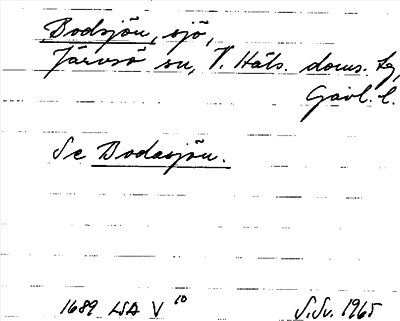 Bodsjön, sjö,
Järvsö sn, V. Häls. doms. tg,
Gävl. l.
Se Bodasjön.
1689 LSA V 10 S.Sv. 1965